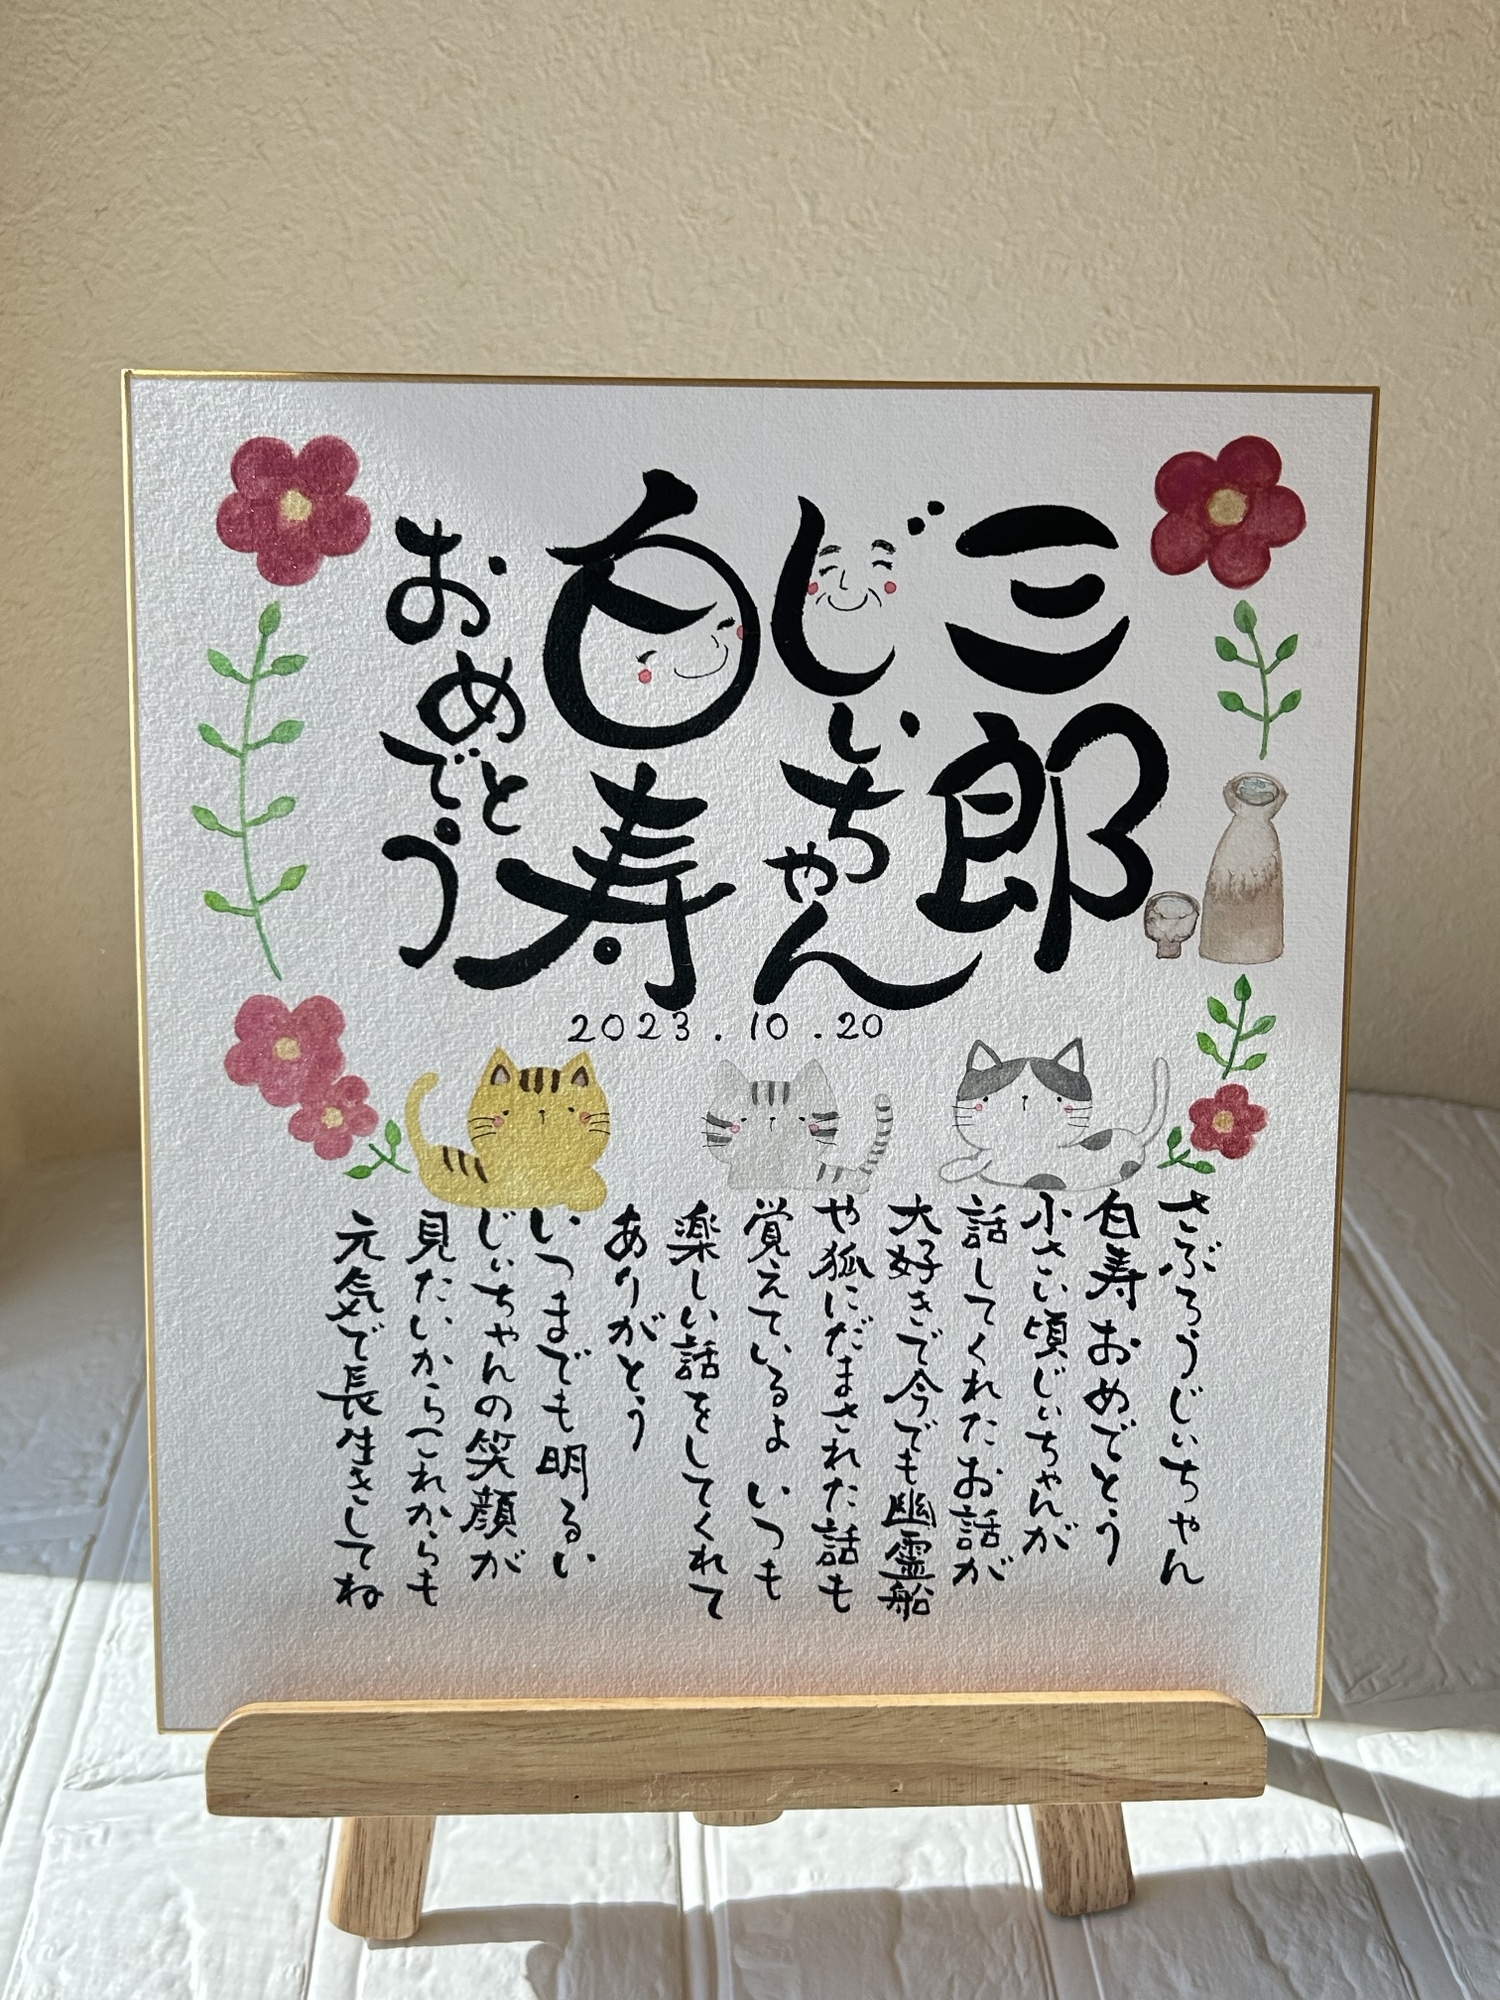 三郎
じぃちゃん
白寿
おめでとう
2023.10.20
さぶろうじぃちゃん
白寿おめでとう
小さい頃じぃちゃんが
話してくれたお話が
大好きで今でも幽霊船
や狐にだまされた話も
覚えているよ いつも
楽しい話をしてくれて
ありがとう
いつまでも明るい
じぃちゃんの笑顔が
見たいからこれからも
元気で長生きしてね